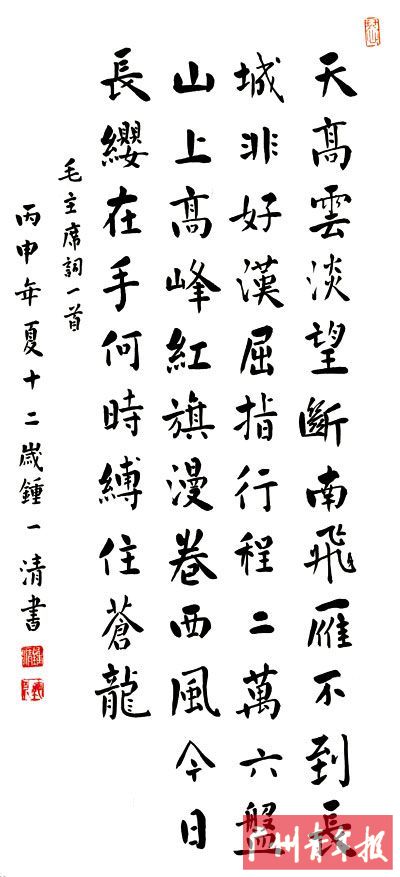 天高雲淡望斷南飛雁不到長
城非好漢屈指行程二萬六盤
山上高峰紅旗漫卷西風今日
長纓在手何時縛住蒼龍
毛主席詞一首
丙申年夏十二歲鍾一清書
广州青年报